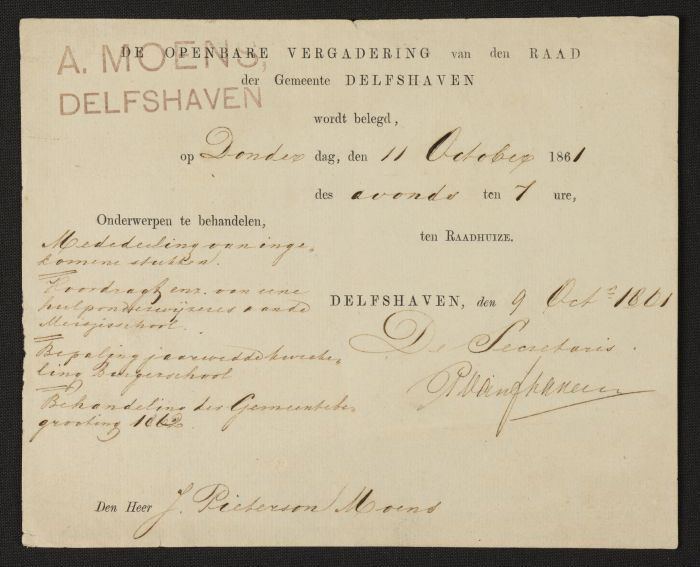 A. MOENS,
DELFSHAVEN
DE OPENBARE VERGADERING van den RAAD
der Gemeente DELFSHAVEN
wordt belegd,
op Donder dag, den 11 October 1861
des avonds ten 7 ure,
ten RAADHUIZE.
Onderwerpen te behandelen,
Mededeeling van inge-
komene stukken.
Voordragt enz. van eene
hulponderwijzeres aan de
Meisjisschool.
Bepaling jaarwedde kweeke-
ling Burgerschool
Behandeling des Gemeentebe-
grooting 1862.
DELFSHAVEN, den 9 Oct. 1861
De Secretaris.
Den Heer J. Pieterson Moens